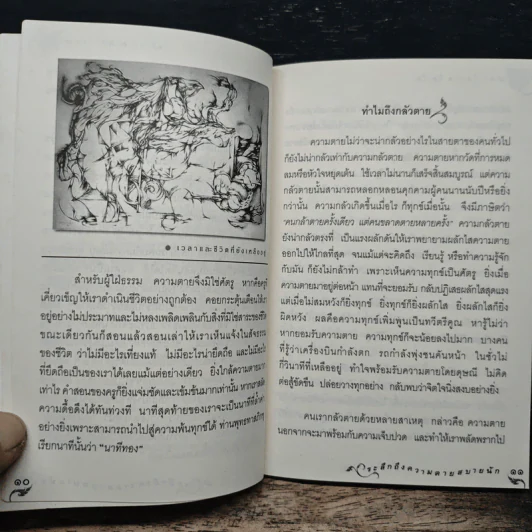 เวลาและชีวิตที่ยังเหลืออยู่
สำหรับผู้ใฝ่ธรรม ความตายจึงมิใช่ศัตรู หากคือครู
เคี่ยวเข็ญให้เราดำเนินชีวิตอย่างถูกต้อง คอยกระตุ้นเตือนให้เรา
อยู่อย่างไม่ประมาทและไม่หลงเพลิดเพลินกับสิ่งที่มิใช่สาระของชีวิต
ขณะเดียวกันก็สอนแล้วสอนเล่าให้เราเห็นแจ้งในสัจธรรม
ของชีวิต ว่าไม่มีอะไรเที่ยงแท้ ไม่มีอะไรน่ายึดถือ และไม่มีอะไร
ที่ยึดถือเป็นของเราได้เลยแม้แต่อย่างเดียว ยิ่งใกล้ความตายมาก
เท่าไร คำสอนของครูก็ยิ่งแจ่มชัดและเข้มข้นมากเท่านั้น หากเราสลัด
ความดื้อดึงได้ทันท่วงที นาทีสุดท้ายของเราจะเป็นนาทีที่ล้ำค่า
อย่างยิ่งเพราะสามารถนำไปสู่ความพ้นทุกข์ได้ ท่านพุทธทาสภิกขุ
เรียกนาทีนั้นว่า "นาทีทอง"
๑๐
ทำไมถึงกลัวตาย
ความตายไม่ว่าจะน่ากลัวอย่างไรในสายตาของคนทั่วไป
ก็ยังไม่น่ากลัวเท่ากับความกลัวตาย ความตายหากวัดที่การหมด
ลมหรือหัวใจหยุดเต้น ใช้เวลาไม่นานก็เสร็จสิ้นสมบูรณ์ แต่ความ
กลัวตายนั้นสามารถหลอกหลอนคุกคามผู้คนนานนับปีหรือยิ่ง
กว่านั้น ความกลัวเกิดขึ้นเมื่อไร ก็ทุกข์เมื่อนั้น จึงมีภาษิตว่า
'คนกล้าตายครั้งเดียว แต่คนขลาดตายหลายครั้ง' ความกลัวตาย
ยังน่ากลัวตรงที่ เป็นแรงผลักดันให้เราพยายามผลักไสความตาย
ออกไปให้ไกลที่สุด จนแม้แต่จะคิดถึง เรียนรู้ หรือทำความรู้จัก
กับมัน ก็ยังไม่กล้าทำ เพราะเห็นความทุกข์เป็นศัตรู ยิ่งเมื่อ
ความตายมาอยู่ต่อหน้า แทนที่จะยอมรับ กลับปฏิเสธผลักไสสุดแรง
แต่เมื่อไม่สมหวังก็ยิ่งทุกข์ ยิ่งทุกข์ก็ยิ่งผลักไส ยิ่งผลักไสก็ยิ่ง
ผิดหวัง ผลคือความทุกข์เพิ่มพูนเป็นทวีตรีคูณ หารู้ไม่ว่า
หากยอมรับความตาย ความทุกข์ก็จะน้อยลงไปมาก บางคน
ที่รู้ว่าเครื่องบินกำลังตก รถกำลังพุ่งชนคันหน้า ในชั่วไม่
กี่วินาทีที่เหลืออยู่ ทำใจพร้อมรับความตายโดยดุษณี ไม่คิด
ต่อสู้ขัดขืน ปล่อยวางทุกอย่าง กลับพบว่าจิตใจนิ่งสงบอย่างยิ่ง
คนเรากลัวตายด้วยหลายสาเหตุ กล่าวคือ ความตาย
นอกจากจะมาพร้อมกับความเจ็บปวด และทำให้เราพลัดพรากไป
ระลึกถึงความตายสบายนัก ๑๑